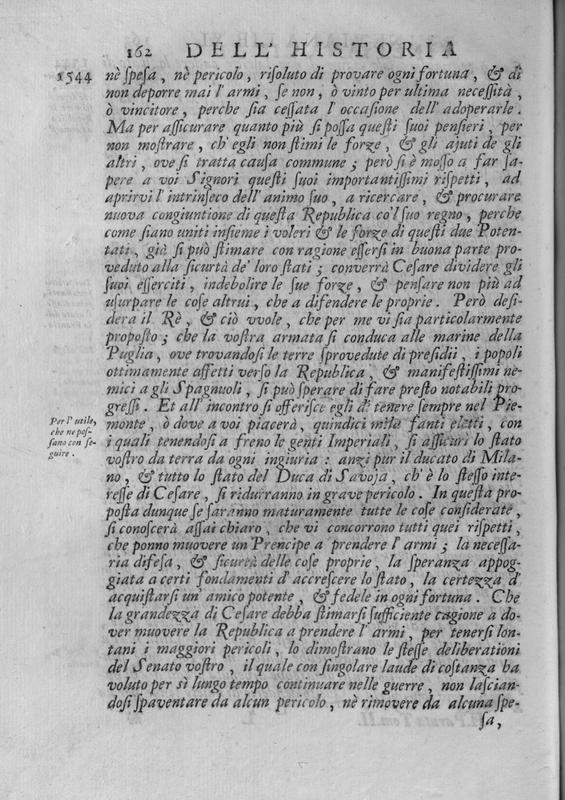 162 DELL' HISTORIA
1544 nè spesa, nè pericolo, risoluto di provare ogni fortuna, & di
non deporre mai l'armi, se non, ò vinto per ultima necessità,
ò vincitore, perche sia cessata l'occasione dell'adoperarle.
Ma per assicurare quanto più si possa questi suoi pensieri, per
non mostrare, ch'egli non stimi le forze, & gli ajuti de gli
altri, ove si tratta causa commune; però si è mosso a far sa-
pere a voi Signori questi suoi importantissimi rispetti, ad
aprirvi l'intrinseco dell'animo suo, a ricercare, & procurare
nuova congiuntione di questa Republica co'l suo regno, perche
come siano uniti insieme i voleri & le forze di questi due Poten-
tati, già si può stimare con ragione essersi in buona parte pro-
veduto alla sicurtà de' loro stati; converrà Cesare dividere gli
suoi esserciti, indebolire le sue forze, & pensare non più ad
usurpare le cose altrui, che a difendere le proprie. Però desi-
dera il Rè, & ciò vvole, che per me vi sia particolarmente
proposto; che la vostra armata si conduca alle marine della
Puglia, ove trovandosi le terre sprovedute di presidii, i popoli
ottimamente affetti verso la Republica, & manifestissimi ne-
mici a gli Spagnuoli, si può sperare di fare presto notabili pro-
gressi. Et all'incontro si offerisce egli di tenere sempre nel Pie-
monte, ò dove a voi piacerà, quindici mila fanti eletti, con
i quali tenendosi a freno le genti Imperiali, si assicuri lo stato
vostro da terra da ogni ingiuria: anzi pur il ducato di Mila-
no, & tutto lo stato del Duca di Savoja, ch'è lo stesso inte-
resse di Cesare, si ridurranno in grave pericolo. In questa pro-
posta dunque se saranno maturamente tutte le cose considerate,
si conoscerà assai chiaro, che vi concorrono tutti quei rispetti,
che ponno muovere un Prencipe a prendere l'armi; la necessa-
ria difesa, & sicurtà delle cose proprie, la speranza appog-
giata a certi fondamenti d'accrescere lo stato, la certezza d'
acquistarsi un'amico potente, & fedele in ogni fortuna. Che
la grandezza di Cesare debba stimarsi sufficiente cagione a do-
ver muovere la Republica a prendere l'armi, per tenersi lon-
tani i maggiori pericoli, lo dimostrano le stesse deliberationi
del Senato vostro, il quale con singolare laude di costanza ha
voluto per sì lungo tempo continuare nelle guerre, non lascian-
dosi spaventare da alcun pericolo, nè rimovere da alcuna spe-
sa,
Per l'utile,
che ne pos-
sano con se-
guire.